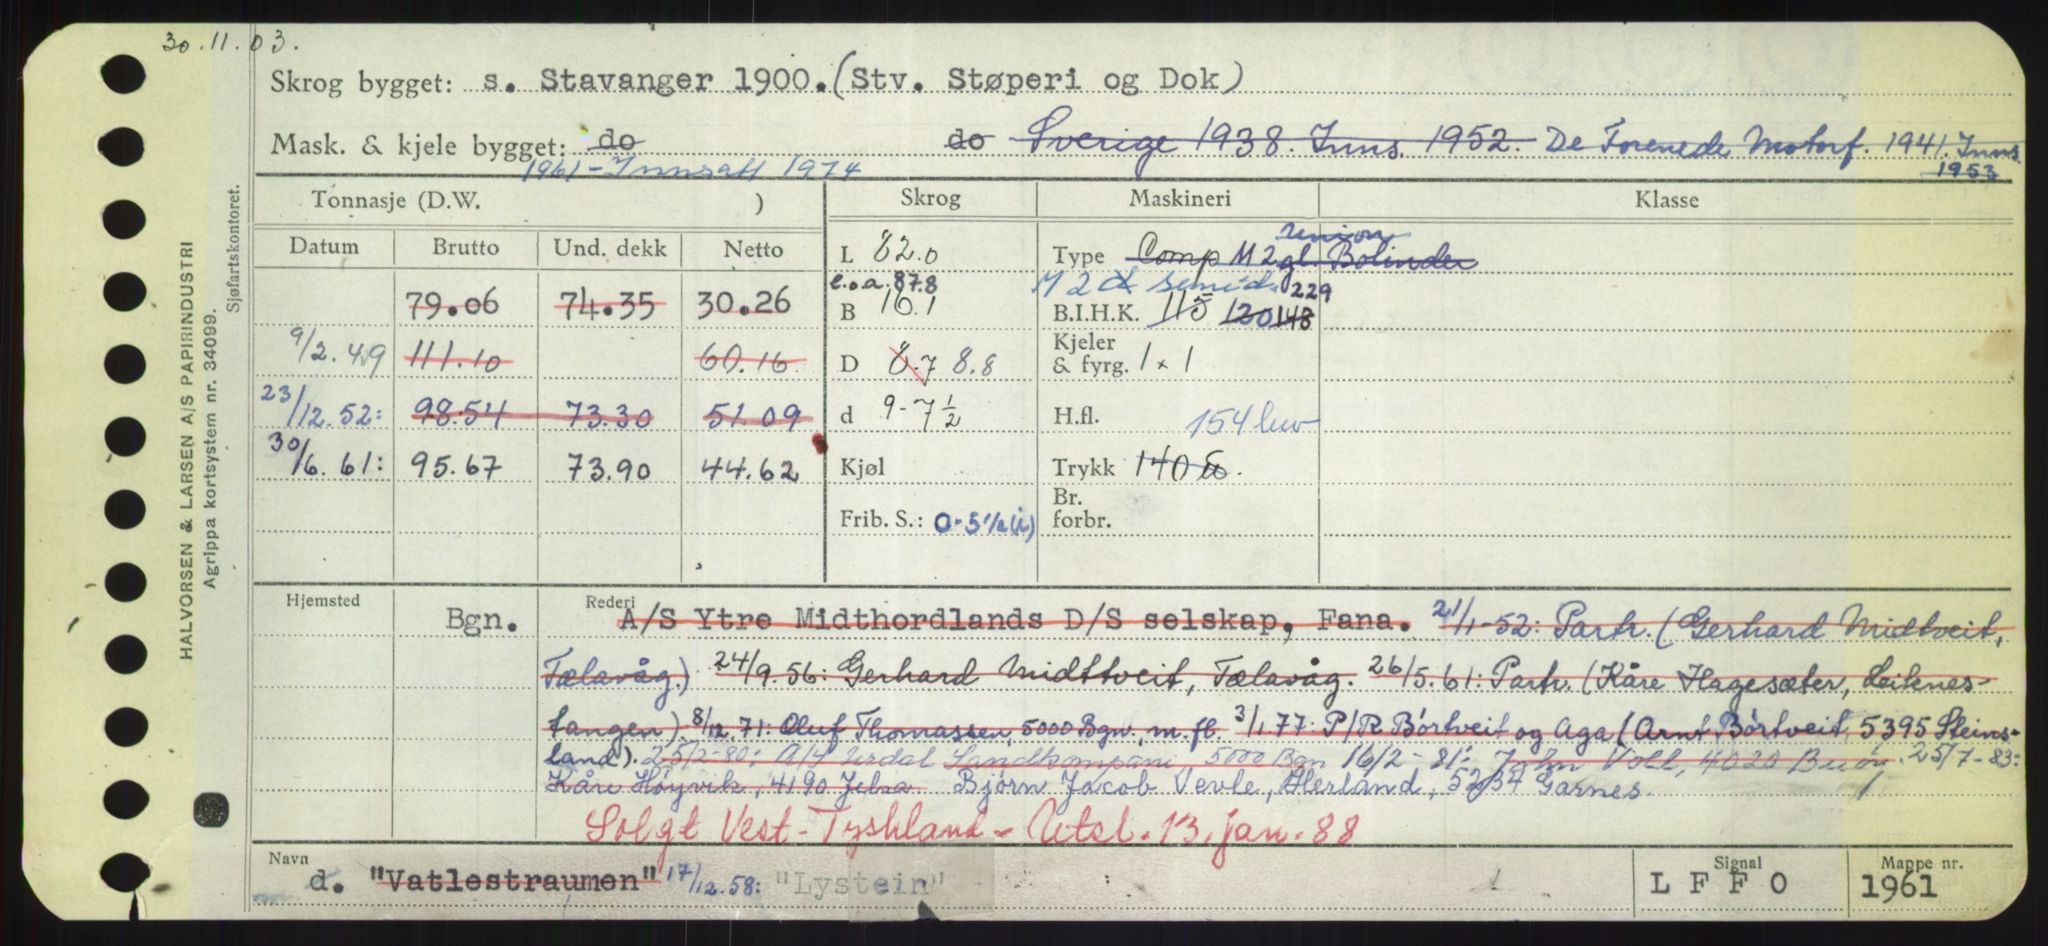 30.11.03.
Skrog bygget: s. Stavanger 1900. (Stv. Støperi og Dok)
Mask. & kjele bygget: do do Sverige 1938. Inns. 1952. De Forenede Motorf. 1941. Inns. 1953
1961 - Innsatt 1974
Tonnasje (D.W. ) Skrog Maskineri Klasse
Datum Brutto Und. dekk Netto
79.06 74.35 30.26
9/2.49 111.10 60.16
23/12.52: 98.54 73.30 51.09
30/6.61: 95.67 73.90 44.62
L 82.0
l.o.a. 87.8
B 16.1
D 8.7 8.8
d 9-7 1/2
Kjøl
Frib. S.: 0-5 1/2 (i)
union
Type Comp M 2 gl. Bolinder
229
B.I.H.K. 115 120 148
Kjeler
& fyrg. 1 x 1
H.fl. 154 kw
Trykk 140
Br.
forbr.
Hjemsted Rederi
Bgn. A/S Ytre Midthordlands D/S selskap, Fana. 21/1-52: Partr. (Gerhard Midtveit,
Tælavåg.) 24/9.56: Gerhard Midttveit, Tælavåg. 26/5.61: Partr. (Kåre Hagesæter, Leiknes-
tangen). 8/12.71: Oluf Thomassen, 5000 Bgn. m.fl. 3/1.77: P/R Børtveit og Aga (Arnt Børtveit, 5395 Steins-
land). 25/2-80: A/S Sandkompani, 5000 Bgn 16/2-81: John Voll, 4020 25/7-83:
Kåre Høyvik, 4190 Jelsa. Bjørn Jacob Vevle, Herland, 5234 Garnes.
Solgt Vest-Tyskland - Utsl. 13. jan. 88
Navn Signal Mappe nr.
d. "Vatlestraumen" 17/12.58: "Lystein" L F F O 1961
HALVORSEN & LARSEN A/S PAPIRINDUSTRI
Agrippa kortsystem nr. 34099.
Sjøfartskontoret.